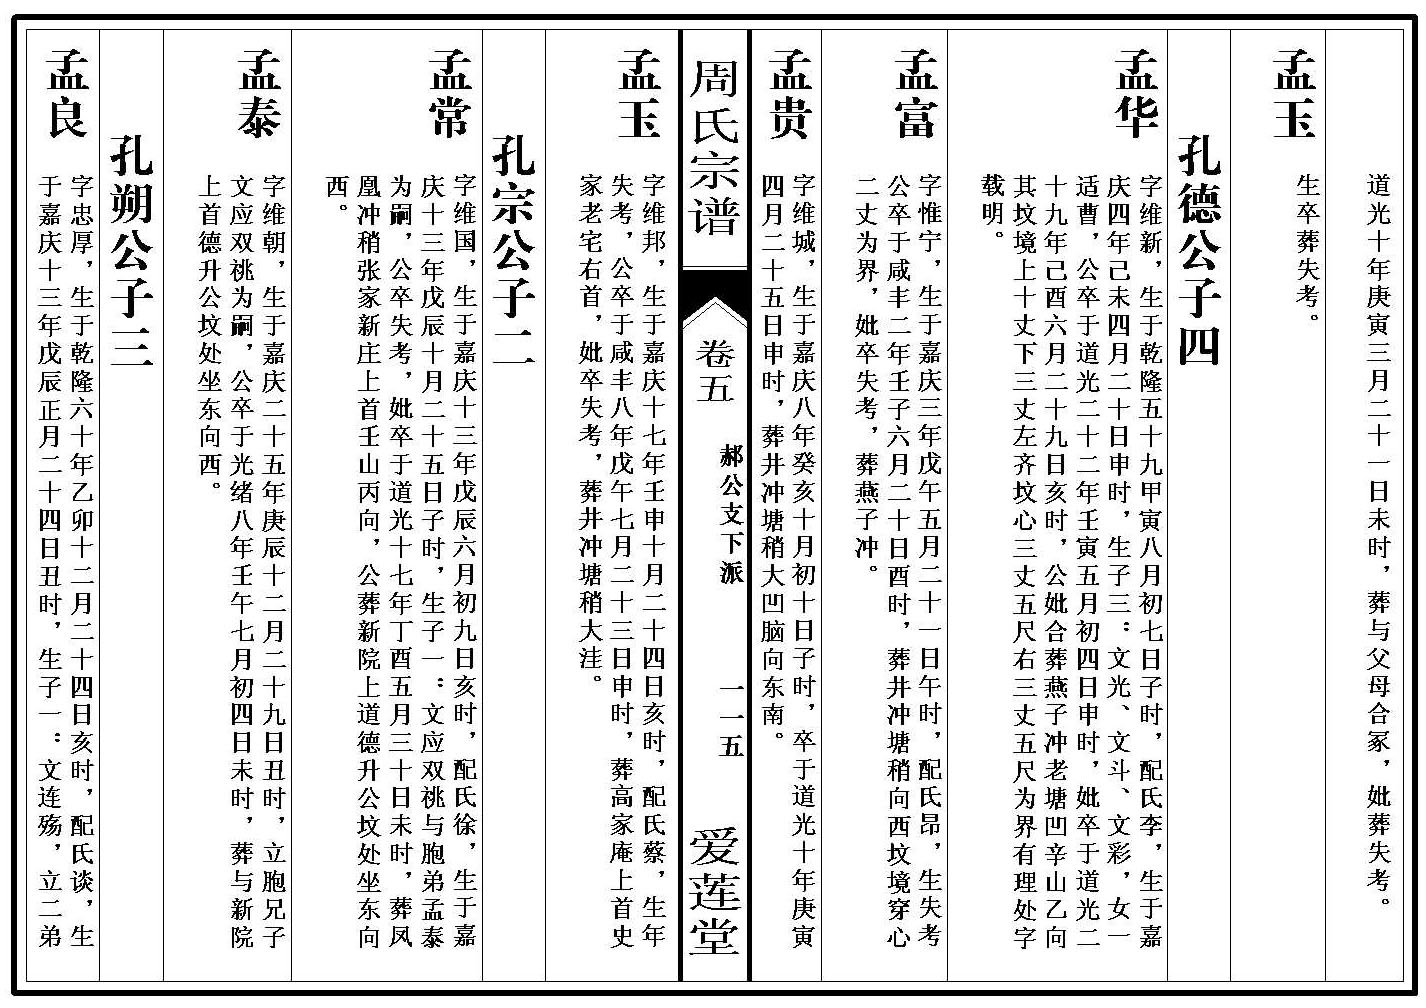 道光十年庚寅三月二十一日未时，葬与父母合冢，妣葬失考。
孟玉
生卒葬失考。
孔德公子四
孟华
字维新，生于乾隆五十九甲寅八月初七日子时，配氏李，生于嘉
庆四年己未四月二十日申时，生子三：文光、文斗、文彩，女一
适曹，公卒于道光二十二年壬寅五月初四日申时，妣卒于道光二
十九年己酉六月二十九日亥时，公妣合葬燕子冲老塘凹辛山乙向
其坟境上十丈下三丈左齐坟心三丈五尺右三丈五尺为界有理处字
载明。
孟富
字惟宁，生于嘉庆三年戊午五月二十一日午时，配氏昂，生失考
公卒于咸丰二年壬子六月二十日酉时，葬井冲塘稍向西坟境穿心
二丈为界，妣卒失考，葬燕子冲。
孟贵
字维城，生于嘉庆八年癸亥十月初十日子时，卒于道光十年庚寅
四月二十五日申时，葬井冲塘稍大凹脑向东南。
周氏宗谱
卷五
郝公支下派
一一五
爱莲堂
孟玉
字维邦，生于嘉庆十七年壬申十月二十四日亥时，配氏蔡，生年
失考，公卒于咸丰八年戊午七月二十三日申时，葬高家庵上首史
家老宅右首，妣卒失考，葬井冲塘稍大洼。
孔宗公子二
孟常
字维国，生于嘉庆十三年戊辰六月初九日亥时，配氏徐，生于嘉
庆十三年戊辰十月二十五日子时，生子一：文应双祧与胞弟孟泰
为嗣，公卒失考，妣卒于道光十七年丁酉五月三十日未时，葬凤
凰冲稍张家新庄上首壬山丙向，公葬新院上道德升公坟处坐东向
西。
孟泰
字维朝，生于嘉庆二十五年庚辰十二月二十九日丑时，立胞兄子
文应双祧为嗣，公卒于光绪八年壬午七月初四日未时，葬与新院
上首德升公坟处坐东向西。
孔朔公子三
孟良
字忠厚，生于乾隆六十年乙卯十二月二十四日亥时，配氏谈，生
于嘉庆十三年戊辰正月二十四日丑时，生子一：文连殇，立二弟